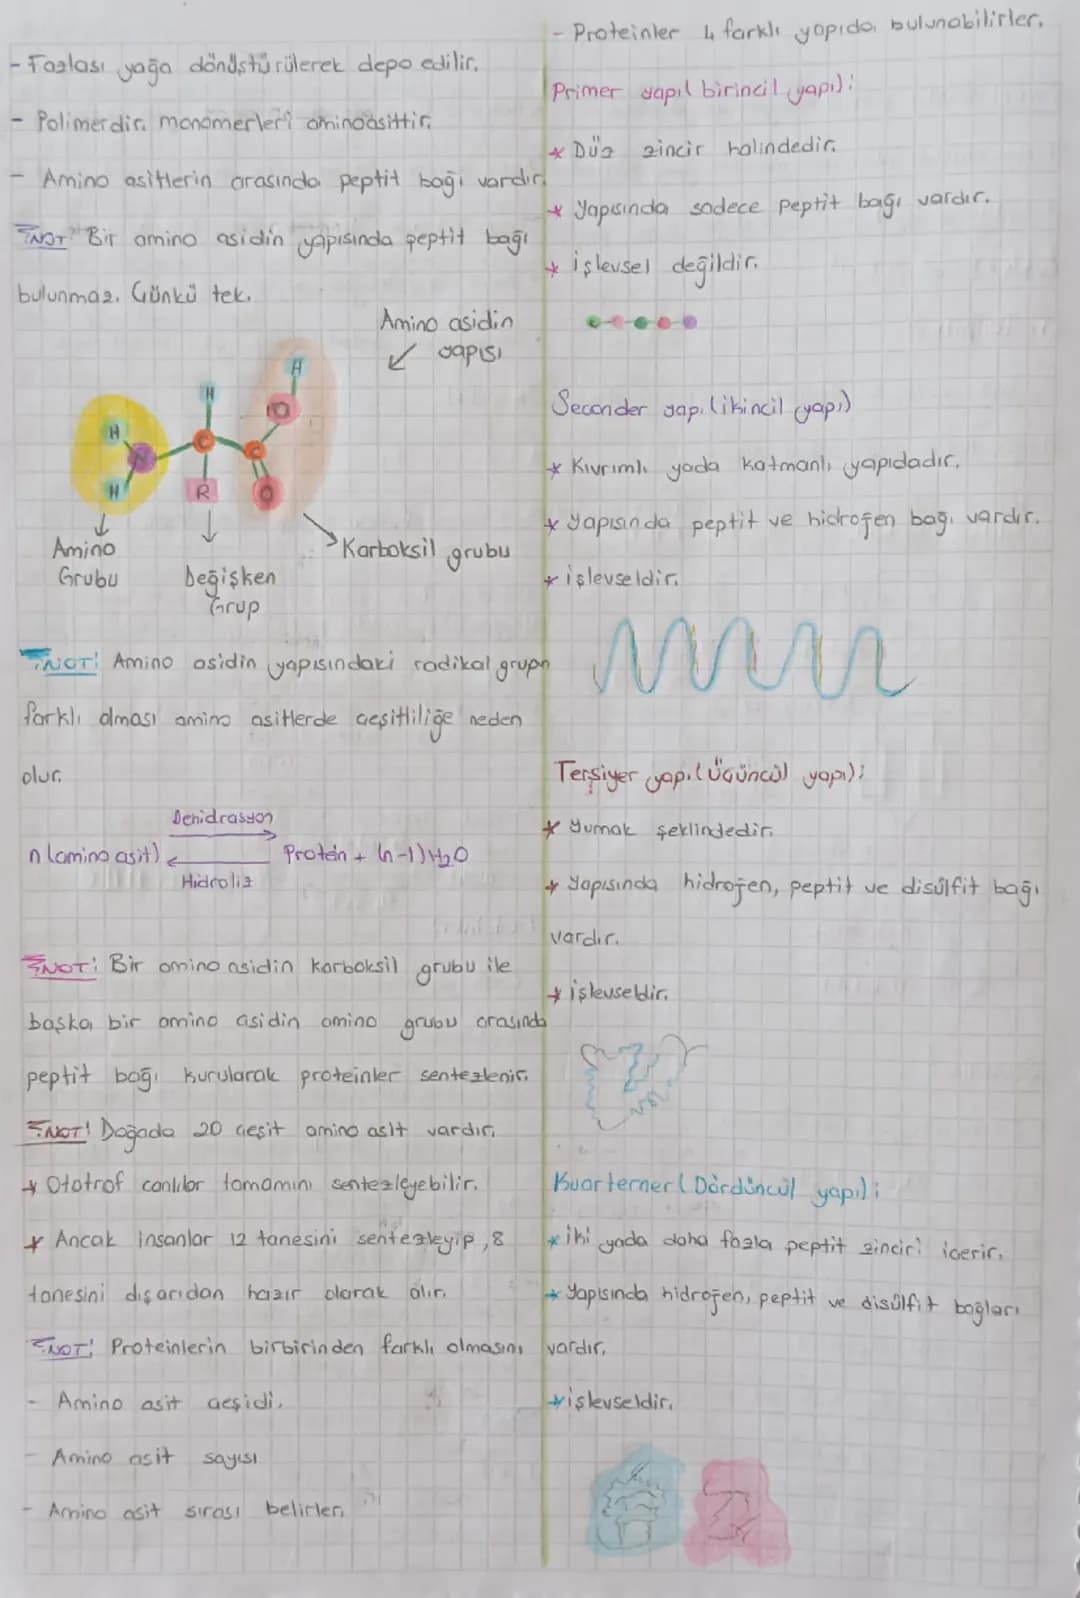 - Fazlası yağa dönüştürülerek depo edilir.
- Polimerdir. monomerleri aminoasittir.
- Amino asitlerin arasında peptit bağı vardır.
NOT: Bir amino asidin yapısında peptit bağı
bulunmaz. Çünkü tek.
Amino asidin
yapısı
H
H
O
H
N
C
C
H
R
O
Amino
Grubu
Değişken
Grup
Karboksil grubu
NOT: Amino asidin yapısındaki radikal grupn
farklı olması amino asitlerde çeşitliliğe neden
olur.
Dehidrasyon
n (amino asit) Protein + (n-1) H₂O
Hidroliz
NOT: Bir amino asidin karboksil grubu ile
başka bir amino asidin amino grubu arasında
peptit bağı kurularak proteinler sentezlenir.
NOT! Doğada 20 çeşit amino asit vardır.
* Ototrof canlılar tamamını sentezleyebilir.
* Ancak insanlar 12 tanesini sentezleyip, 8
tanesini dışarıdan hazır olarak alır.
NOT: Proteinlerin birbirinden farklı olmasını
- Amino asit çeşidi.
- Amino asit sayısı
- Amino asit sırası belirler.
- Proteinler 4 farklı yapıda bulunabilirler.
Primer yapı( birincil yapı):
* Düz zincir halindedir.
* Yapısında sadece peptit bağı vardır.
* işlevsel değildir.
Seconder yapı (ikincil yapı)
* Kıvrımlı yada katmanlı yapıdadır.
* Yapısında peptit ve hidrojen bağı vardır.
* işlevseldir.
Terşiyer yapı (Üçüncül yapı):
* Yumak şeklindedir.
* Yapısında hidrojen, peptit ve disülfit bağı
vardır.
* işlevseldir.
Kuarterner ( Dördüncül yapı):
* iki yada daha fazla peptit zinciri içerir.
* Yapısında hidrojen, peptit ve disülfit bağları
vardır.
* işlevseldir.